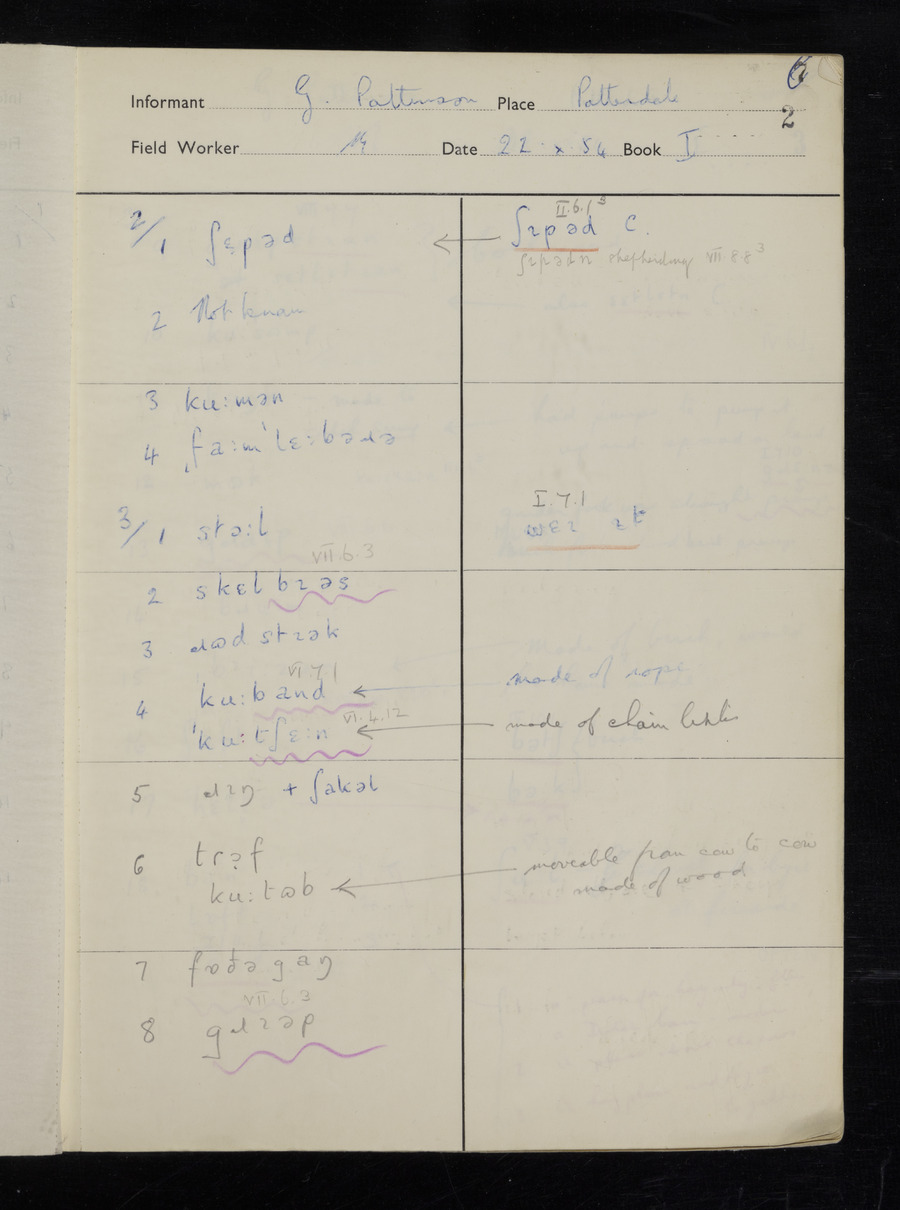 6
Informant G. Pattinson Place Patterdale
2
Field Worker Date 22 x 54 Book I
II.6.1³
2/1 ʃɛpəd ʃɪpəd C.
ʃɪpədn shepherding VII.8.8³
2 Not known
3 ku:mən
4 fa:m'lɛ:bəɹə
I.7.1
3/1 stə:l wɛɪ ɪt
VII.6.3
2 skɛl bɪəs
3 ɹɷd stɪək
VI.7.1
4 ku:band made of rope
VI.4.12
'ku:tʃɛ:n made of chain links
5 ɹɪŋ + ʃakəl
6 trɔf moveable from cow to cow
ku:tɷb made of wood
7 fɒðə gaŋ
VII.6.3
8 gɹɪəp